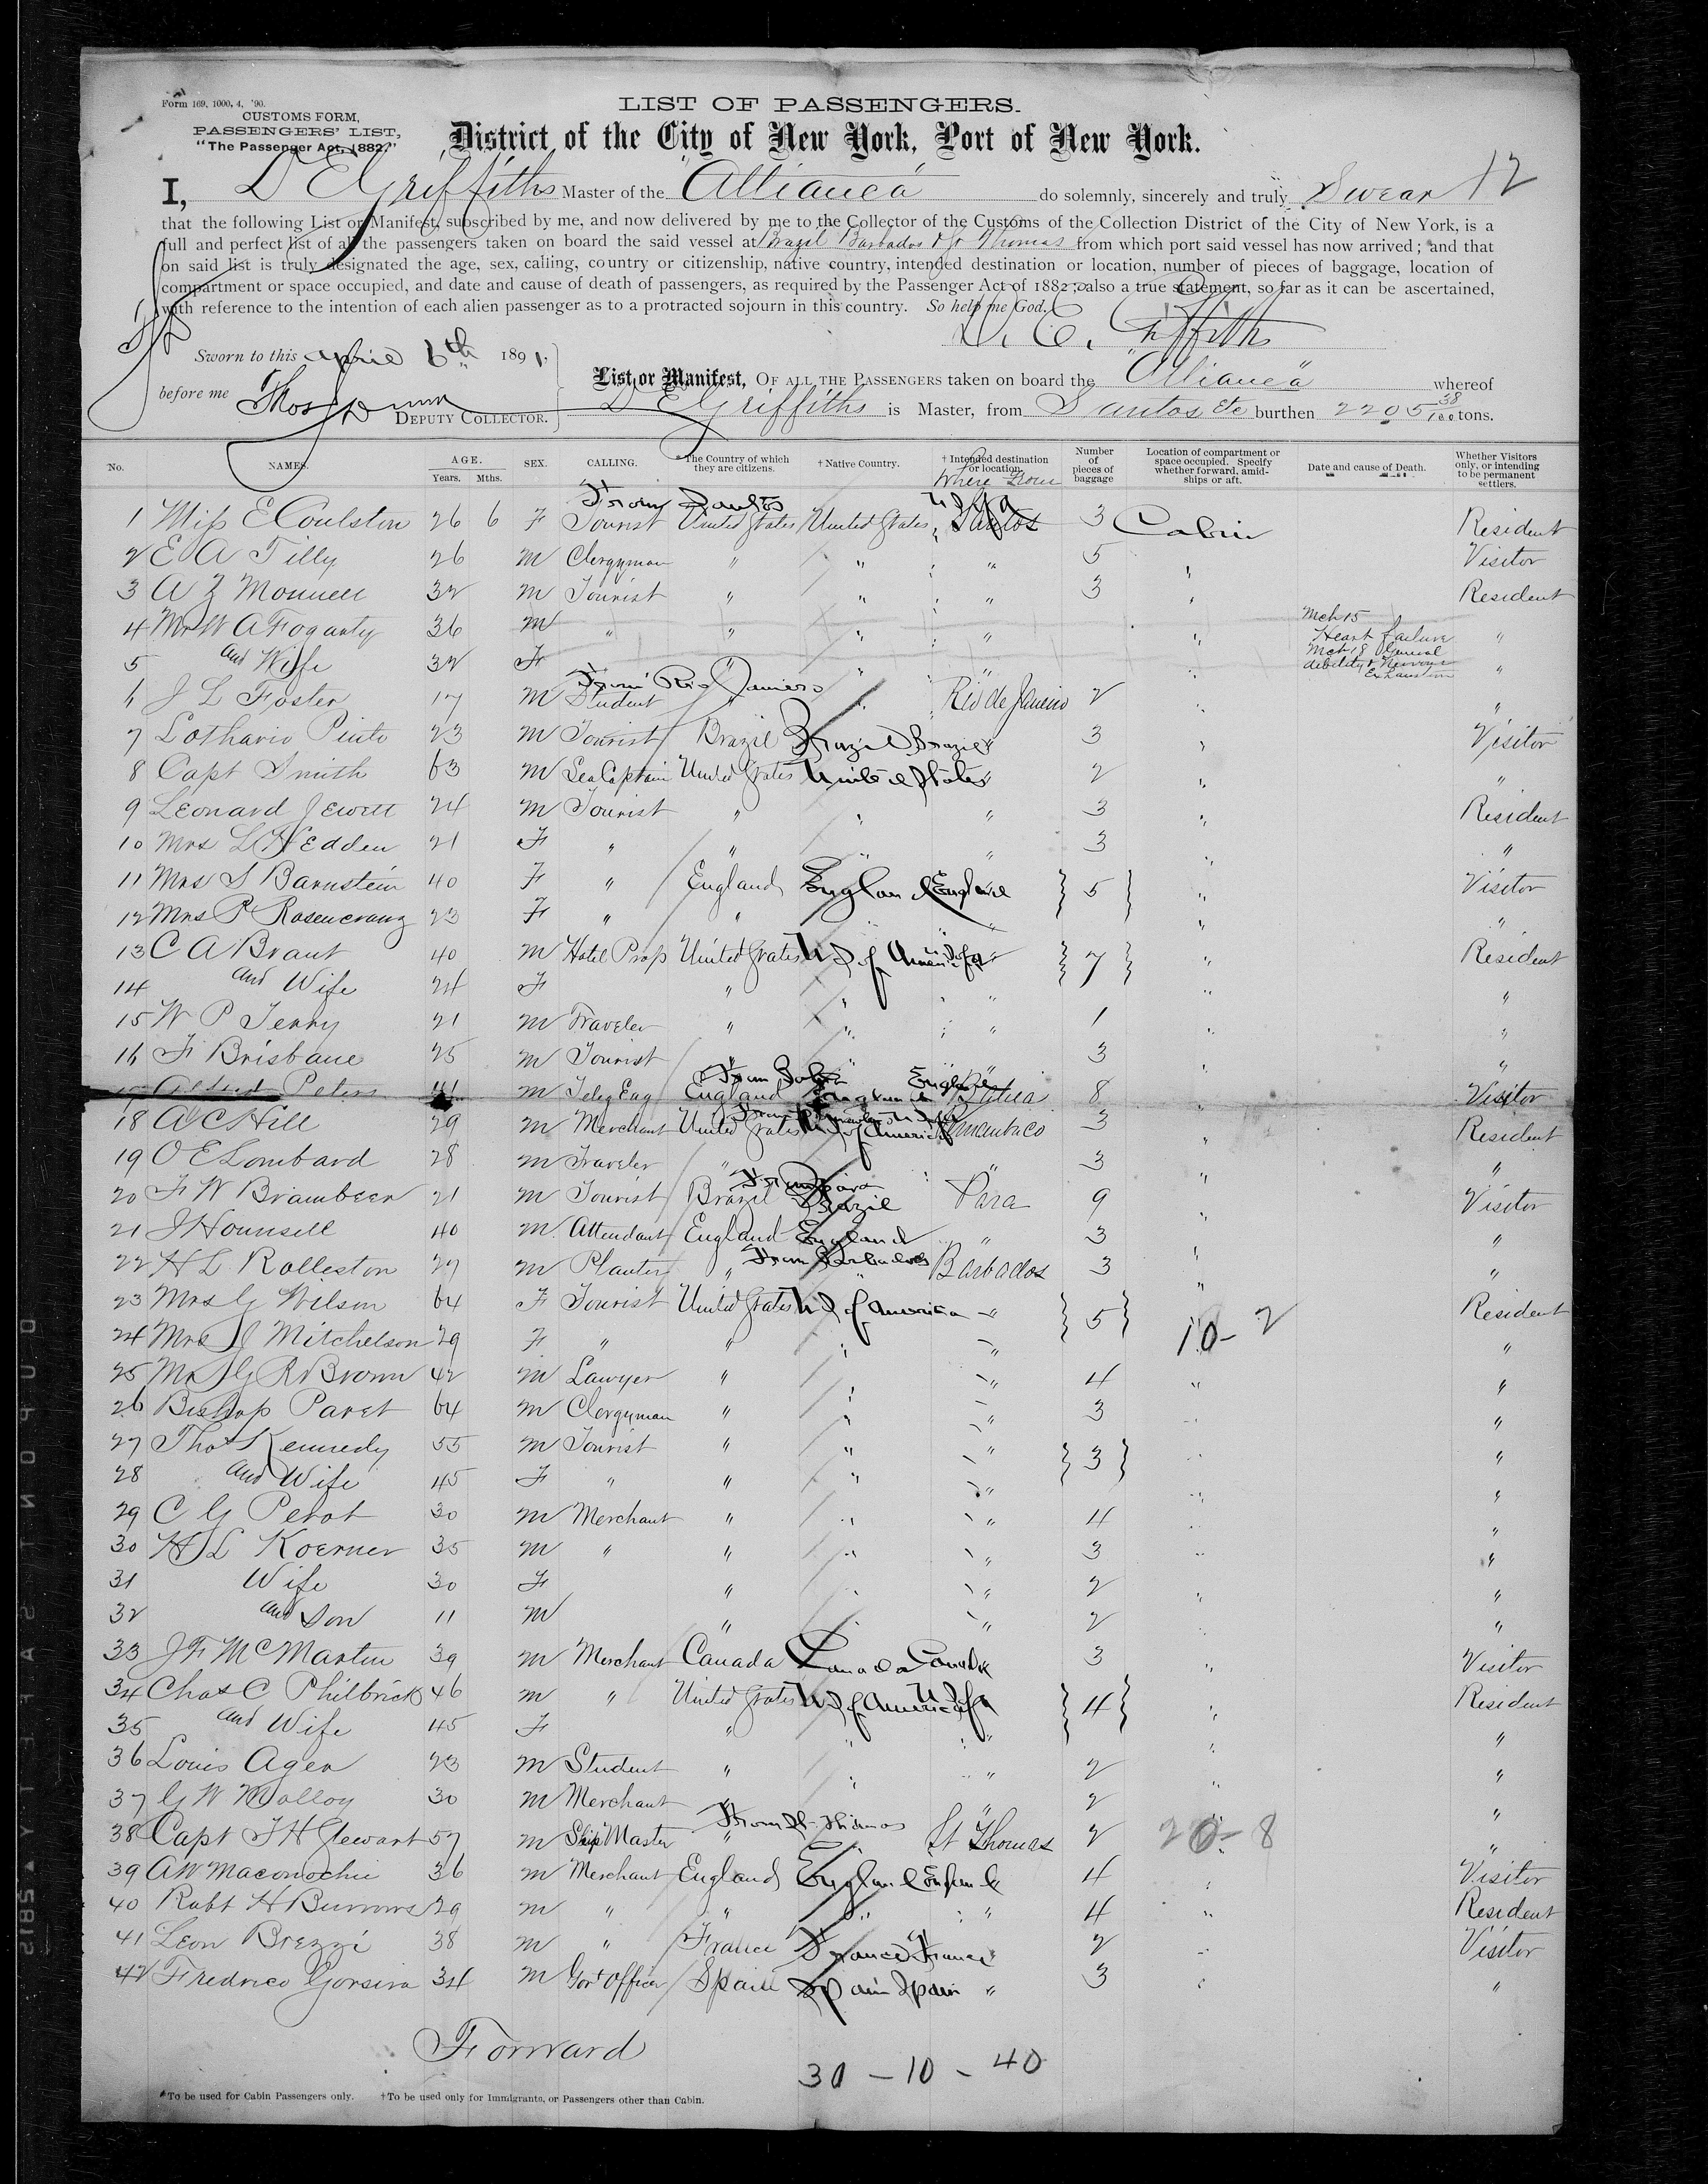 Form 169. 1000, 4, '90.
CUSTOMS FORM,
PASSENGERS' LIST,
"The Passenger Act, 1882."
LIST OF PASSENGERS.
District of the City of New York, Port of New York.
I, D E Griffiths Master of the "Allianca" do solemnly, sincerely and truly Swear 12
that the following List or Manifest, subscribed by me, and now delivered by me to the Collector of the Customs of the Collection District of the City of New York, is a
full and perfect list of all the passengers taken on board the said vessel at Brazil Barbados & St Thomas from which port said vessel has now arrived; and that
on said list is truly designated the age, sex, calling, country or citizenship, native country, intended destination or location, number of pieces of baggage, location of
compartment or space occupied, and date and cause of death of passengers, as required by the Passenger Act of 1882; also a true statement, so far as it can be ascertained,
with reference to the intention of each alien passenger as to a protracted sojourn in this country. So help me God.
Sworn to this April 6th 1891,
before me Thos
DEPUTY COLLECTOR.
List or Manifest, OF ALL THE PASSENGERS taken on board the "Allianca" whereof
D E Griffiths is Master, from Santos Etc burthen 2205 38/100 tons.
No. NAMES. AGE. Years. Mths. SEX. CALLING. *The Country of which they are citizens. † Native Country. † Intended destination or location. Where From Number of pieces of baggage Location of compartment or space occupied. Specify whether forward, amidships or aft. Date and cause of Death. Whether Visitors only, or intending to be permanent settlers.
From Santos
1 Miss E Coulston 26 6 F Tourist United States United States USA Santos 3 Cabin Resident
2 E A Tilly 26 M Clergyman " " " 5 " Visitor
3 A Z 32 M Tourist " " " 3 " Resident
4 Mr W A Fogarty 36 M " " " " " Mch 15 Heart failure "
5 and Wife 32 F " " " " Mch 18 General debility & Nervous Exhaustion "
From Rio Janiero
6 J L Foster 17 M Student " " Rio de Janeiro 2 " "
7 Lothario Pinto 23 M Tourist Brazil Brazil Brazil " 3 " Visitor
8 Capt Smith 63 M Sea Captain United States United States " 2 " "
9 Leonard Jewett 24 M Tourist " " " 3 " Resident
10 Mrs L Hedden 21 F " " " " 3 " "
11 Mrs S Barnstein 40 F " England England England 5 " Visitor
12 Mrs P Rosencranz 23 F " " " " " "
13 C A Brant 40 M Hotel Prop United States U S of America U S of A 7 " Resident
14 and Wife 24 F " " " " "
15 W P Terry 21 M Traveler " " " 1 " "
16 F Brisbane 25 M Tourist " " " 3 " "
17 Peters 41 M Teleg Eng England England England 8 " Visitor
18 A C Hill 29 M Merchant United States U S of America 3 " Resident
19 O E Lombard 28 M Traveler " " 3 " "
From Para
20 F W Brambeer 21 M Tourist Brazil Brazil Para 9 " Visitor
21 J Hounsell 40 M Attendant England England " 3 " "
From Barbados
22 H L Rolleston 27 M Planter " " Barbados 3 " "
23 Mrs G Wilson 64 F Tourist United States U S of America " 5 " Resident
24 Mrs J Mitchelson 29 F " " " " 10- 2 "
25 Mr G R Brown 42 M Lawyer " " " 4 " "
26 Bishop Paret 64 M Clergyman " " " 3 " "
27 Thos Kennedy 55 M Tourist " " " 3 " "
28 and Wife 45 F " " " " " "
29 C G Perot 30 M Merchant " " " 4 " "
30 H L Koerner 35 M " " " " 3 " "
31 Wife 30 F " " " 2 " "
32 and Son 11 M " " " 2 " "
33 J F McMartin 39 M Merchant Canada Canada Canada 3 " Visitor
34 Chas C Philbrick 46 M " United States U S of America U S of A 4 " Resident
35 and Wife 45 F " " " " "
36 Louis Ager 23 M Student " " " 2 " "
37 G W Molloy 30 M Merchant " " " 2 " "
From St Thomas
38 Capt T H Stewart 57 M Ship Master " " St Thomas 2 20- 8 "
39 A W Maconochie 36 M Merchant England England England 4 " Visitor
40 Robt H Burrows 29 M " " " " 4 " Resident
41 Leon Brezzi 38 M " France France France 2 " Visitor
42 Fredrico Gorsira 34 M Govt Officer Spain Spain Spain " 3 " "
Forward
30 - 10 - 40
*To be used for Cabin Passengers only. †To be used only for Immigrants, or Passengers other than Cabin.